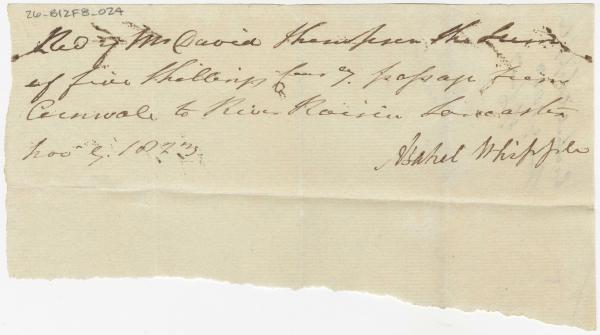 26-B12F8-024
Recd of Mr David Thompson the Sum
of five Shillings for passage from
Cornwale to River Raisin Lancaster
Nov 9. 1823
Asahel Whipple